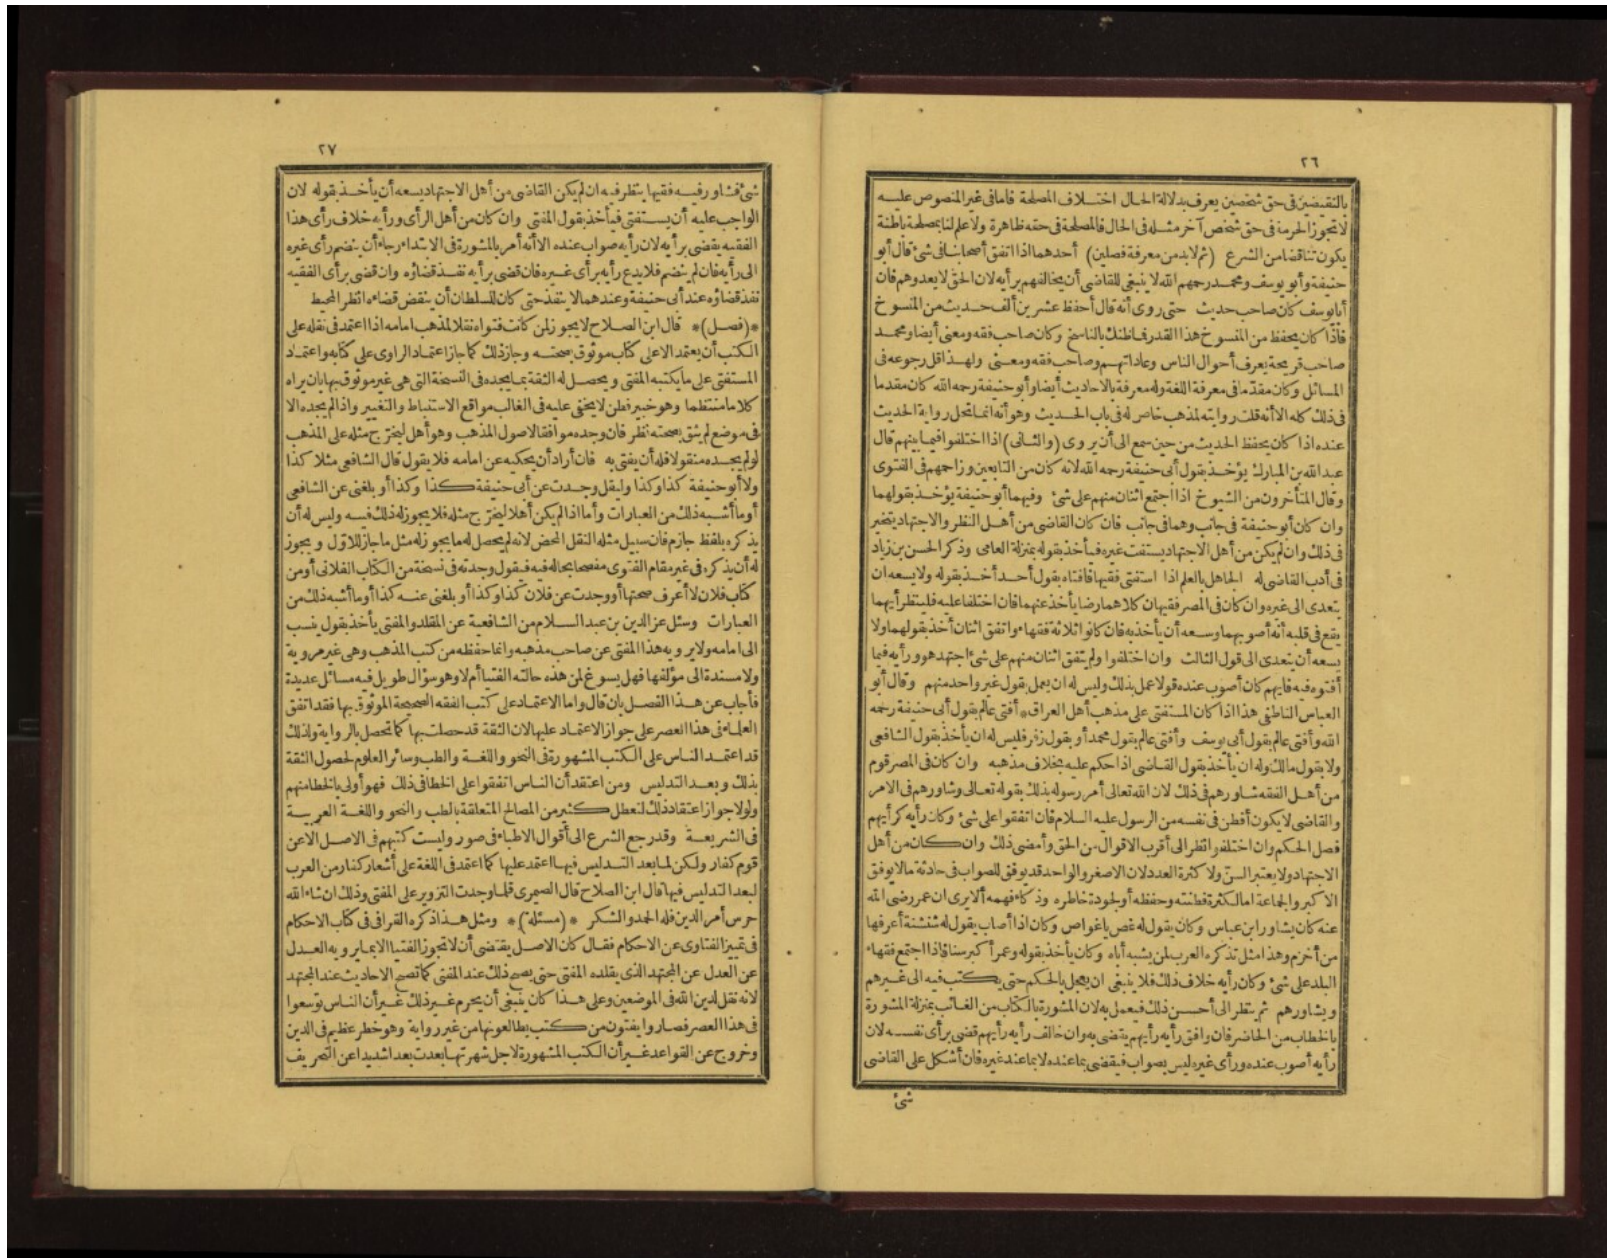 ٢٦
بالنقيضين فى حق شخصين يعرف بدلالة الحال اختلاف المصلحة فامافى غير المنصوص عليه
لاتجوز الحرمة فى حق شخص آخر مثله فى الحال فالمصلحة فى حقه ظاهرة ولاعلم لنا بمصلحة باطنة
يكون تناقضا من الشرع (ثم لابد من معرفة فصلين) أحدهما اذا اتفق أصحابنا فى شئ قال أبو
حنيفة وأبو يوسف ومحمد رحمهم الله لا ينبغى للقاضى أن يخالفهم برأيه لان الحق لا يعدوهم فان
أبا يوسف كان صاحب حديث حتى روى أنه قال أحفظ عشرين ألف حديث من المنسوخ
فاذا كان يحفظ من المنسوخ هذا القدر فماظنك بالناسخ وكان صاحب فقه ومعنى أيضا ومحمد
صاحب قريحة يعرف أحوال الناس وعاداتهم وصاحب فقه ومعنى ولهذا قل رجوعه فى
المسائل وكان مقدّما فى معرفة اللغة وله معرفة بالاحاديث أيضا وأبو حنيفة رحمه الله كان مقدما
فى ذلك كله الاأنه قلت روايته لمذهب خاص له فى باب الحديث وهو أنه انما تحل رواية الحديث
عنده اذا كان يحفظ الحديث من حين سمع الى أن يروى (والثانى) اذا اختلفوا فيما بينهم قال
عبد الله بن المبارك يؤخذ بقول أبى حنيفة رحمه الله لانه كان من التابعين وزاحمهم فى الفتوى
وقال المتأخرون من الشيوخ اذا اجتمع اثنان منهم على شئ وفيهما أبو حنيفة يؤخذ بقولهما
وان كان أبو حنيفة فى جانب وهما فى جانب فان كان القاضى من أهل النظر والاجتهاد يتخير
فى ذلك وان لم يكن من أهل الاجتهاد يستفت غيره فيأخذ بقوله بمنزلة العامى وذكر الحسن بن زياد
فى أدب القاضى له الجاهل بالعلم اذا استفتى فقيها فافتاه بقول أحد أخذ بقوله ولا يسعه ان
يتعدى الى غيره وان كان فى المصر فقيهان كلاهما رضا يأخذ عنهما فان اختلفا عليه فلينظر أيهما
يقع فى قلبه أنه أصوبهما وسعه أن يأخذ به فان كانوا ثلاثة فقهاء واتفق اثنان أخذ بقولهما ولا
يسعه أن يتعدى الى قول الثالث وان اختلفوا ولم يتفق اثنان منهم على شئ اجتهد هو ورأيه فيما
أفتوه فيه فايهم كان أصوب عنده قولا عمل بذلك وليس له ان يعمل بقول غير واحد منهم وقال أبو
العباس الناطفى هذا اذا كان المستفتى على مذهب أهل العراق * أفتى عالم بقول أبى حنيفة رحمه
الله وأفتى عالم بقول أبى يوسف وأفتى عالم بقول محمد أو بقول زفر فليس له ان يأخذ بقول الشافعى
ولا بقول مالك وله ان يأخذ بقول القاضى اذا حكم عليه بخلاف مذهبه وان كان فى المصر قوم
من أهل الفقه شاورهم فى ذلك لان الله تعالى أمر رسوله بذلك بقوله تعالى وشاورهم فى الامر
والقاضى لا يكون أفطن فى نفسه من الرسول عليه السلام فان اتفقوا على شئ وكان رأيه كرأيهم
فصل الحكم وان اختلفوا نظر الى أقرب الاقوال من الحق وأمضى ذلك وان كان من أهل
الاجتهاد ولا يعتبر السنّ ولا كثرة العدد لان الاصغر والواحد قد يوفق للصواب فى حادثة مالا يوفق
الاكبر والجماعة اما لكثرة فطنته وحفظه أو لجودة خاطره وذكاء فهمه ألا يرى ان عمر رضى الله
عنه كان يشاور ابن عباس وكان يقول له غص ياغواص وكان اذا أصاب يقول له شنشنة أعرفها
من أخزم وهذا مثل تذكره العرب لمن يشبه أباه وكان يأخذ بقوله وعمر أكبر سنا فاذا اجتمع فقهاء
البلد على شئ وكان رأيه خلاف ذلك فلا ينبغى ان يعجل بالحكم حتى يكتب فيه الى غيرهم
ويشاورهم ثم ينظر الى أحسن ذلك فيعمل به لان المشورة بالكتاب من الغائب بمنزلة المشورة
بالخطاب من الحاضر فان وافق رأيه رأيهم يقضى به وان خالف رأيه رأيهم قضى برأى نفسه لان
رأيه أصوب عنده ورأى غيره ليس بصواب فيقضى بما عنده لا بما عند غيره فان أشكل على القاضى
شئ
٢٧
شئ فشاور فيه فقيها ينظر فيه ان لم يكن القاضى من أهل الاجتهاد يسعه أن يأخذ بقوله لان
الواجب عليه أن يستفتى فيأخذ بقول المفتى وان كان من أهل الرأى ورأيه خلاف رأى هذا
الفقيه يقضى برأيه لان رأيه صواب عنده الاأنه أمر بالمشورة فى الابتداء رجاء أن ينضم رأى غيره
الى رأيه فان لم ينضم فلا يدع رأيه برأى غيره فان قضى برأيه نفذ قضاؤه وان قضى برأى الفقيه
نفذ قضاؤه عند أبى حنيفة وعندهما لا ينفذ حتى كان للسلطان أن ينقض قضاءه انظر المحيط
*(فصل)* قال ابن الصلاح لا يجوز لمن كانت فتواه نقلا لمذهب امامه اذا اعتمد فى نقله على
الكتب أن يعتمد الا على كتاب موثوق بصحته وجاز ذلك كما جاز اعتماد الراوى على كتابه واعتماد
المستفتى على ما يكتبه المفتى ويحصل له الثقة بما يجده فى النسخة التى هى غير موثوق بها بان يراه
كلاما منتظما وهو خبير فطن لا يخفى عليه فى الغالب مواقع الاستنباط والتغيير واذا لم يجده الا
فى موضع لم يثق بصحته نظر فان وجده موافقا لاصول المذهب وهو أهل ليخرّج مثله على المذهب
لو لم يجده منقولا فله أن يفتى به فان أراد أن يحكيه عن امامه فلا يقول قال الشافعى مثلا كذا
ولا أبو حنيفة كذا وكذا وليقل وجدت عن أبى حنيفة كذا وكذا أو بلغنى عن الشافعى
أو ما أشبه ذلك من العبارات وأما اذا لم يكن أهلا ليخرّج مثله فلا يجوز له ذلك فيه وليس له أن
يذكره بلفظ جازم فان سبيل مثله النقل المحض لانه لم يحصل له ما يجوز له مثل ما جاز للاوّل ويجوز
له أن يذكره فى غير مقام الفتوى مفصحا بحاله فيه فيقول وجدته فى نسخة من الكتاب الفلانى أو من
كتاب فلان لا أعرف صحتها أو وجدت عن فلان كذا وكذا أو بلغنى عنه كذا أو ما أشبه ذلك من
العبارات وسئل عز الدين بن عبد السلام من الشافعية عن المقلد والمفتى يأخذ بقول ينسب
الى امامه ولا يرويه هذا المفتى عن صاحب مذهبه وانما حفظه من كتب المذهب وهى غير مروية
ولا مسندة الى مؤلفها فهل يسوغ لمن هذه حالته الفتيا أم لا وهو سؤال طويل فيه مسائل عديدة
فأجاب عن هذا الفصل بان قال واما الاعتماد على كتب الفقه الصحيحة الموثوق بها فقد اتفق
العلماء فى هذا العصر على جواز الاعتماد عليها لان الثقة قد حصلت بها كما تحصل بالرواية ولذلك
قد اعتمد الناس على الكتب المشهورة فى النحو واللغة والطب وسائر العلوم لحصول الثقة
بذلك وبعد التدليس ومن اعتقد أن الناس اتفقوا على الخطا فى ذلك فهو أولى بالخطا منهم
ولولا جواز اعتقاد ذلك لتعطل كثير من المصالح المتعلقة بالطب والنحو واللغة العربية
فى الشريعة وقد رجع الشرع الى أقوال الاطباء فى صور وليست كتبهم فى الاصل الا عن
قوم كفار ولكن لما بعد التدليس فيها اعتمد عليها كما اعتمد فى اللغة على أشعار كفار من العرب
لبعد التدليس فيها قال ابن الصلاح قال الصيمرى قلما وجدت التزوير على المفتى وذلك ان شاء الله
حرس أمر الدين فلله الحمد والشكر *(مسئلة)* ومثل هذا ذكره القرافى فى كتاب الاحكام
فى تمييز الفتاوى عن الاحكام فقال كان الاصل يقتضى أن لا تجوز الفتيا الا بما يرويه العدل
عن العدل عن المجتهد الذى يقلده المفتى حتى يصح ذلك عند المفتى كما تصح الاحاديث عند المجتهد
لانه نقل لدين الله فى الموضعين وعلى هذا كان ينبغى أن يحرم غير ذلك غير أن الناس توّسعوا
فى هذا العصر فصاروا يفتون من كتب يطالعونها من غير رواية وهو خطر عظيم فى الدين
وخروج عن القواعد غير أن الكتب المشهورة لاجل شهرتها بعدت بعدا شديدا عن التحريف